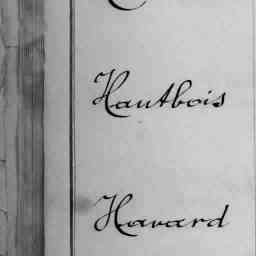 Hautbois
Havard